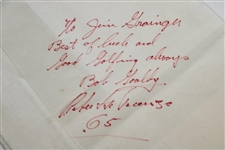 To Jim Grainger
Best of luck and
Good Golfing always
Bob Goalby
Roberto De Vicenzo
65